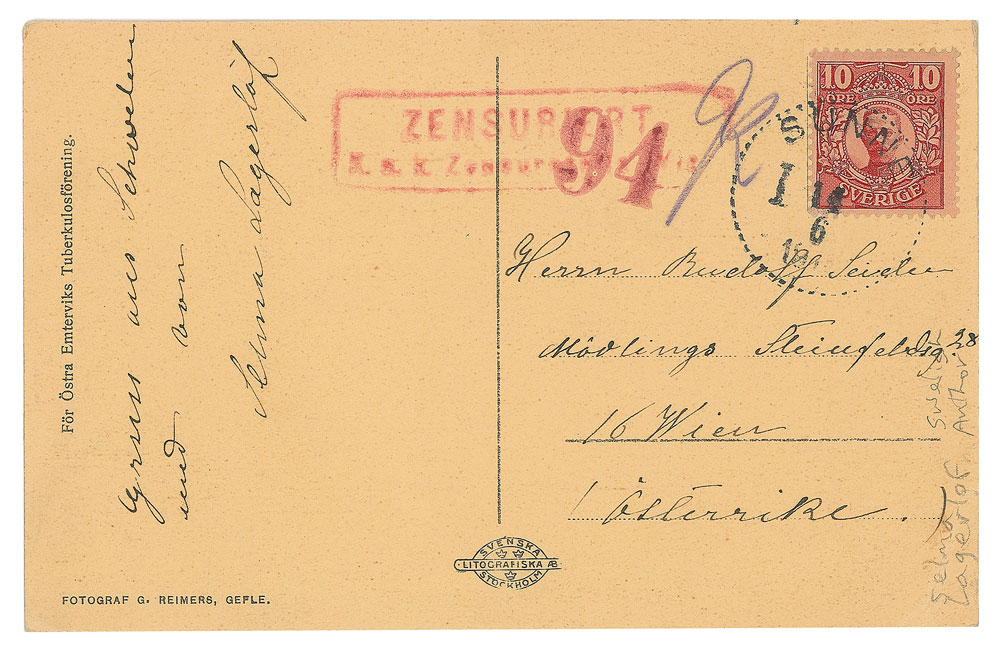 För Östra Emterviks Tuberkulosförening.
Gruss aus Schweden
und von
Selma Lagerlöf
FOTOGRAF G. REIMERS, GEFLE.
ZENSURIERT
K. u. k. Zensur
94
10 10
ÖRE ÖRE
SVERIGE
SUNNE
1
14
6
Herrn Rudolf Seiden
Mödlings 28
16 Wien
Österrike.
SVENSKA
LITOGRAFISKA AB
STOCKHOLM
Selma
Lagerlof
Swedish
Author